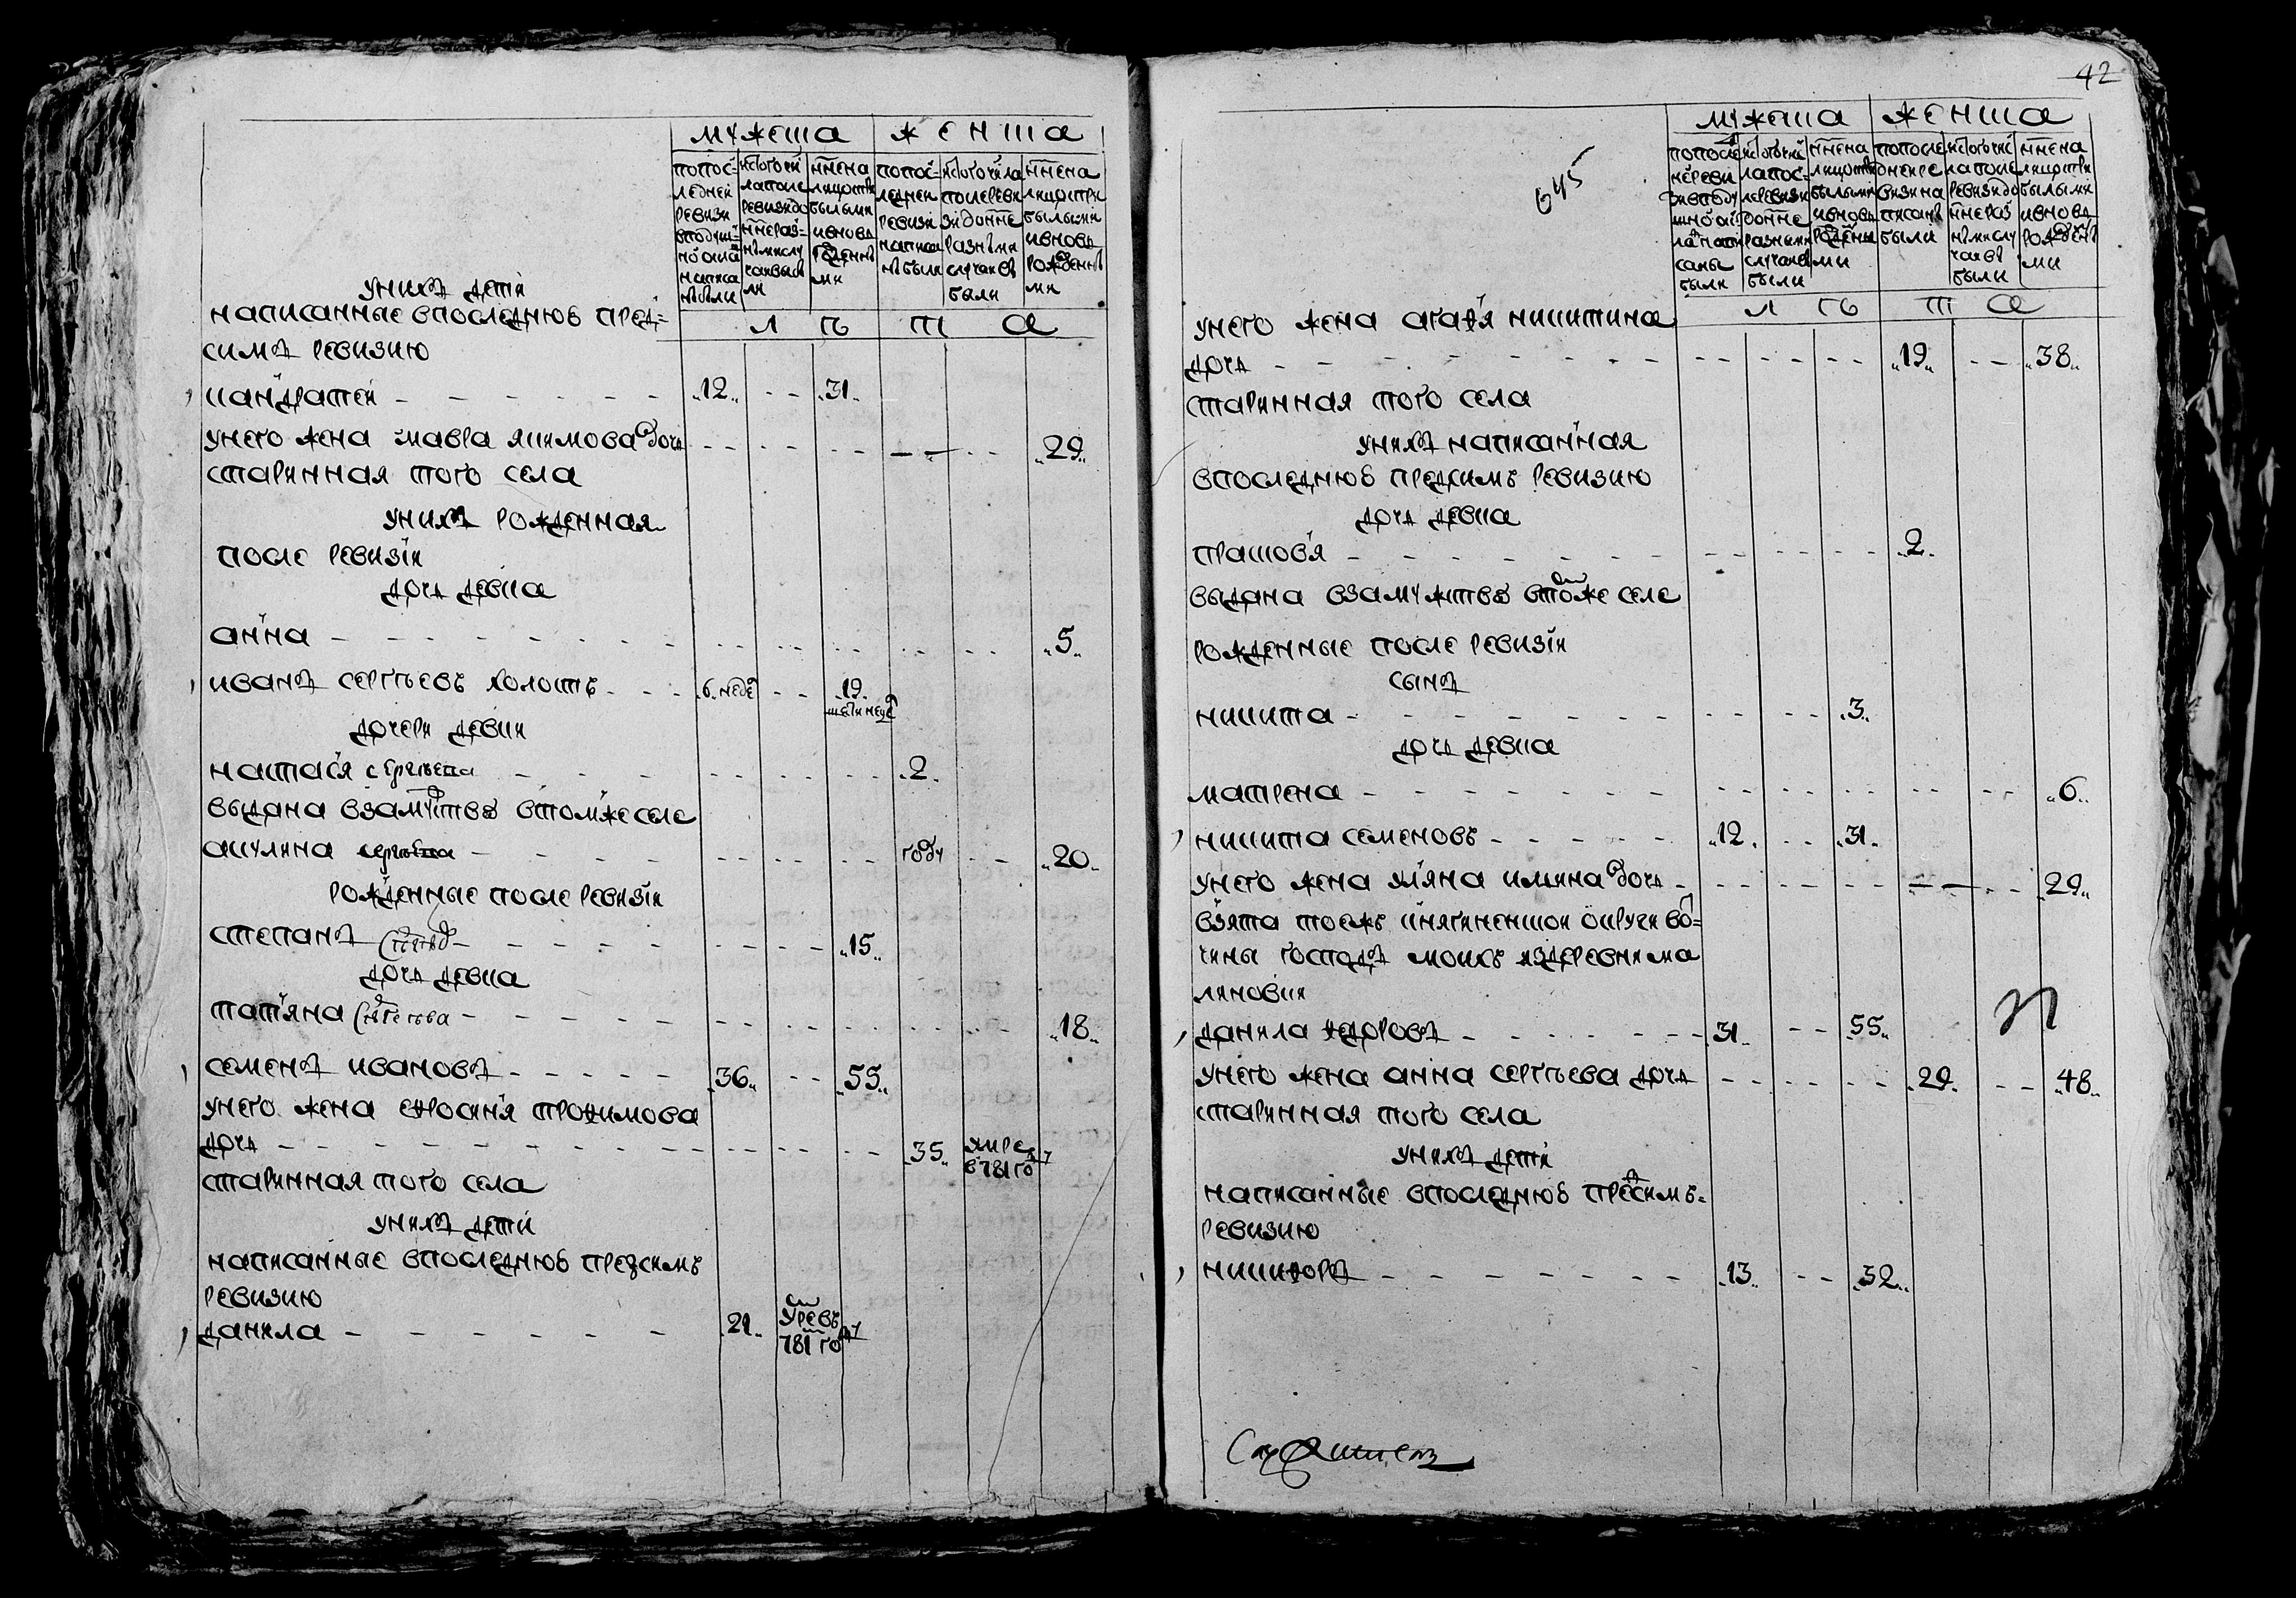 мужеска женска
попос-
ледней
ревизи
вподуш-
но окла
написа
ны были
изтого чи
ла после
ревизи до
нне раз-
ными слу
чаи выбы
ли
ннена
лицо спри
былыми
ивновь
рожденны
ми
попос-
ледней
ревизи
написа
ны были
изтого числа
после реви
зи донне
разными
случаи
были
ннена
лицо спри
былыми
ивновь
рожденны
ми
л ть т а
уних дети
написанные впоследнюю пред-
симъ ревизию
кандратей - - - - - - .12. - - .31.
унего жена мавра якимова дочь - - - - - - - - .29.
старинная того села
уних рожденная
после ревизiи
дочь девка
анна - - - - - - - .5.
иванъ сергѣевъ холостъ - - - .6. неде - - .19.
дочери девки
настасiя сергѣева - - - - - .2.
выдана взамужство втомже селе
акулина сергѣева - - - - - году - - .20.
рожденные после ревизiи
степанъ - - - - - - .15.
дочь девка
татьяна - - - - - - .18.
семенъ ивановъ - - - - - .36. - - .55.
унего жена ефросинья трофимова
дочь - - - - - - - - .35. умре
в 781 го
старинная того села
уних дети
написанные впоследнюю предсимъ
ревизию
данила - - - - - - .21.
781 го
42
645
мужеска женска
попосле
дней реви
зи вподу
шно ок
ла напи
саны
были
изтого чис
ла пос-
ле ревизи
донне
разными
случаи
были
ннена
лицо спри
былыми
ивновь
рожденны
ми
попосле
дней ре
визи на
писаны
были
изтого чис
ла после
ревизи до
нне раз
ными слу
чаи
были
ннена
лицо спри
былыми
ивновь
рожден
ми
л ть т а
унего жена агафья никитина
дочь - - - - - - - - - - - - .19. - - .38.
старинная того села
уних написанная
впоследнюю предсимъ ревизию
дочь девка
прасковья - - - - - - - - - .2.
выдана взамужство втомже селе
рожденные после ревизiи
сынъ
никита - - - - - - - - - .3.
дочь девка
матрена - - - - - - - - - .6.
никита семеновъ - - - - - .12. - - .31.
унего жена ульяна ильина дочь - - - - - - - - .29.
взята тоежъ княгиненской округи вот-
чины господъ моихъ издеревни ма
линовки
данила федоровъ - - - - - - .31. - - .55.
унего жена анна сергѣева дочь - - - - - - .29. - - .48.
старинная того села
уних дети
написанные впоследнюю предсимъ-
ревизию
никифоръ - - - - - - - .13. - - .32.